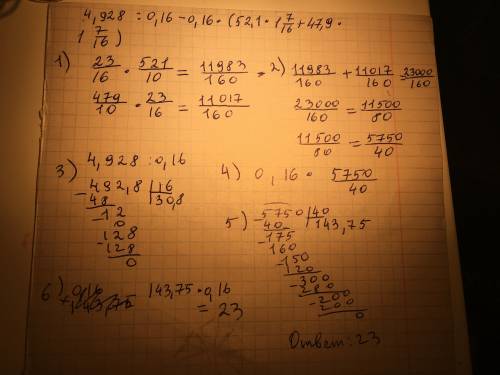 4,928 : 0,16 - 0,16 · (52,1 · 1 7/16 + 47,9 ·
1 7/16)
1) 23/16 · 521/10 = 11983/160
479/10 · 23/16 = 11017/160
2) 11983/160 + 11017/160 = 23000/160
23000/160 = 11500/80
11500/80 = 5750/40
3) 4,928 : 0,16
- 492,8 | 16
48 | 30,8
- 12
0
- 128
128
0
4) 0,16 · 5750/40
5) - 5750 | 40
40 | 143,75
- 175
160
- 150
120
- 300
280
- 200
200
0
6) 143,75 · 0,16
= 23
Ответ: 23